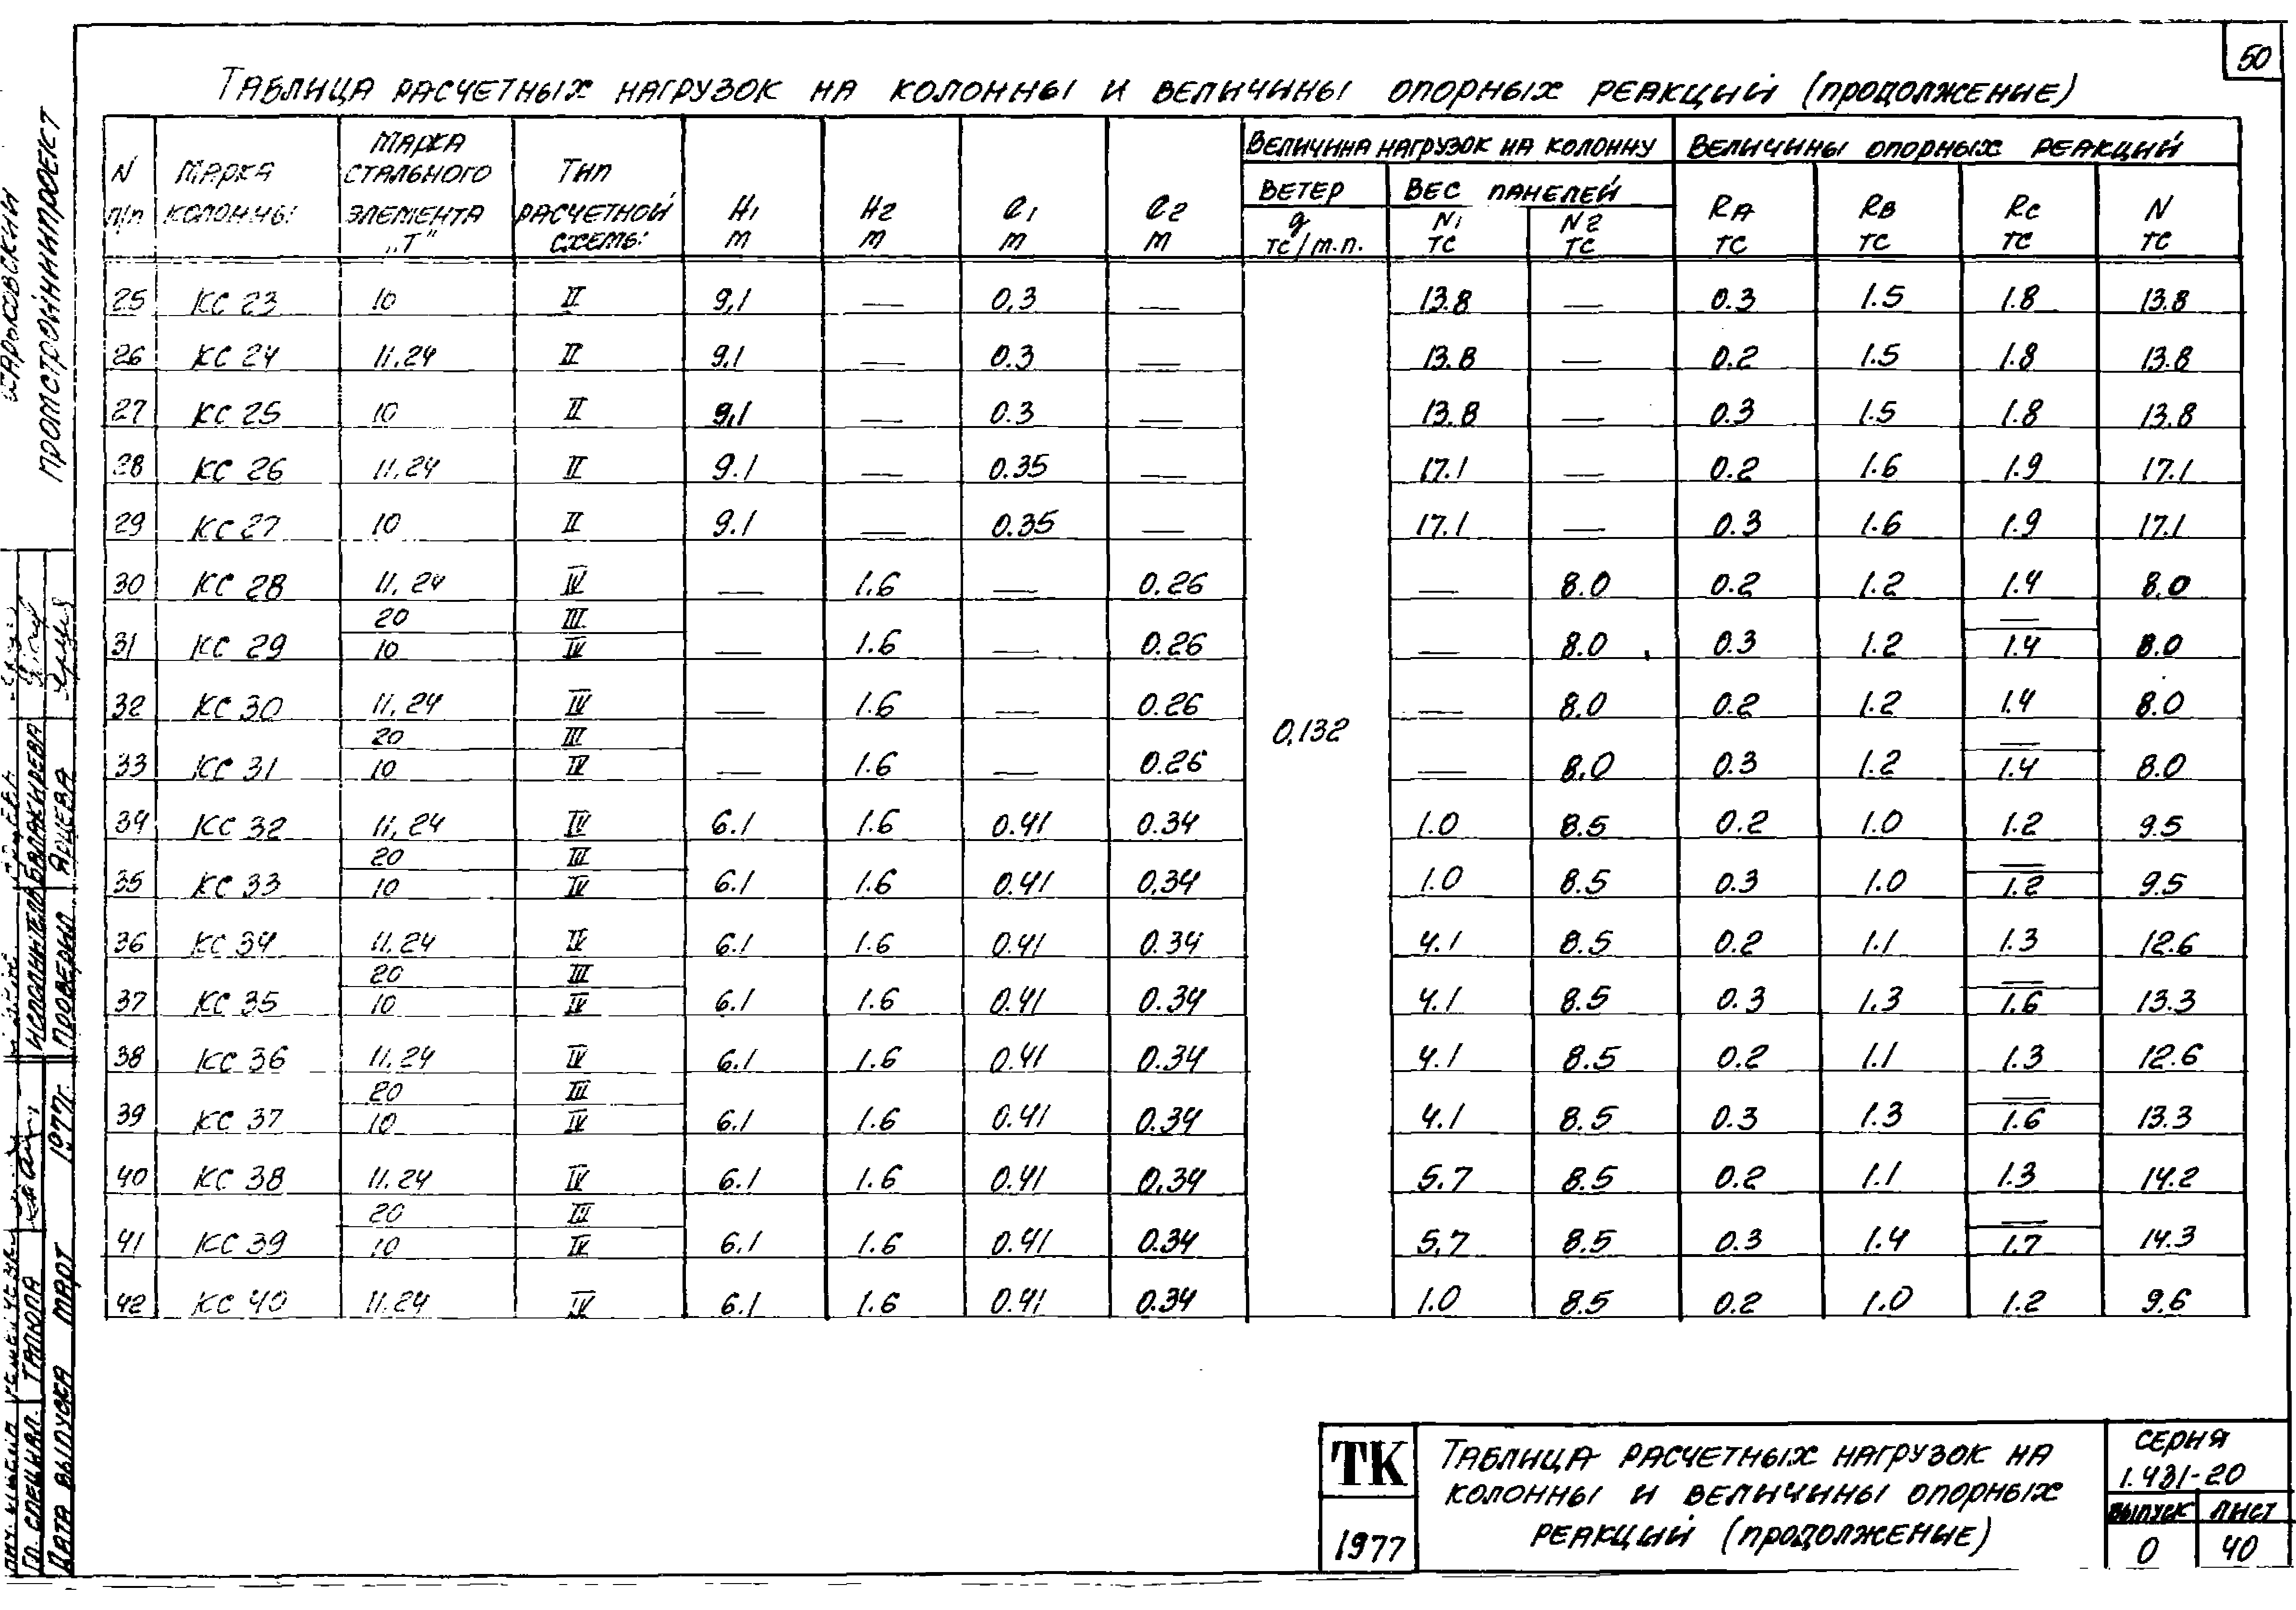 50
Таблица расчетных нагрузок на колонны и величины опорных реакций (продолжение)
N п/п | Марка колонны | Марка стального элемента „Т" | Тип расчетной схемы | H1 м | H2 м | e1 м | e2 м | Величина нагрузок на колонну | Величины опорных реакций
Ветер | Вес панелей
q тс/м.п. | N1 тс | N2 тс | RA тс | RB тс | RC тс | N тс
25 КС 23 10 II 9,1 — 0,3 — 13.8 — 0.3 1.5 1.8 13.8
26 КС 24 11.24 II 9,1 — 0.3 — 13.8 — 0.2 1.5 1.8 13.8
27 КС 25 10 II 9,1 — 0.3 — 13.8 — 0.3 1.5 1.8 13.8
28 КС 26 11.24 II 9.1 — 0.35 — 17.1 — 0.2 1.6 1.9 17.1
29 КС 27 10 II 9.1 — 0.35 — 17.1 — 0.3 1.6 1.9 17.1
30 КС 28 11.24 IV — 1.6 — 0.26 — 8.0 0.2 1.2 1.4 8.0
20 III —
31 КС 29 10 IV — 1.6 — 0.26 — 8.0 0.3 1.2 1.4 8.0
32 КС 30 11.24 IV — 1.6 — 0.26 — 8.0 0.2 1.2 1.4 8.0
0,132
20 III —
33 КС 31 10 IV — 1.6 — 0.26 — 8.0 0.3 1.2 1.4 8.0
34 КС 32 11,24 IV 6.1 1.6 0.41 0.34 1.0 8.5 0.2 1.0 1.2 9.5
20 III —
35 КС 33 10 IV 6.1 1.6 0.41 0,34 1.0 8.5 0.3 1.0 1.2 9.5
36 КС 34 11.24 IV 6.1 1.6 0.41 0.34 4.1 8.5 0.2 1.1 1.3 12.6
20 III —
37 КС 35 10 IV 6.1 1.6 0.41 0.34 4.1 8.5 0.3 1.3 1.6 13.3
38 КС 36 11.24 IV 6.1 1.6 0.41 0.34 4.1 8.5 0.2 1.1 1.3 12.6
20 III —
39 КС 37 10 IV 6.1 1.6 0.41 0.34 4.1 8.5 0.3 1.3 1.6 13.3
40 КС 38 11.24 IV 6.1 1.6 0.41 0.34 5.7 8.5 0.2 1.1 1.3 14.2
20 III —
41 КС 39 10 IV 6.1 1.6 0.41 0.34 5.7 8.5 0.3 1.4 1.7 14.3
42 КС 40 11.24 IV 6.1 1.6 0.41 0.34 1.0 8.5 0.2 1.0 1.2 9.6
ТК
1977
Таблица расчетных нагрузок на
колонны и величины опорных
реакций (продолжение)
серия
1.431-20
выпуск лист
0 40
Харьковский
Промстройниипроект
Исполнитель Балакирева
Проверил Ярцева
Гл. специал. Талюпа
Дата выпуска март 1977г.